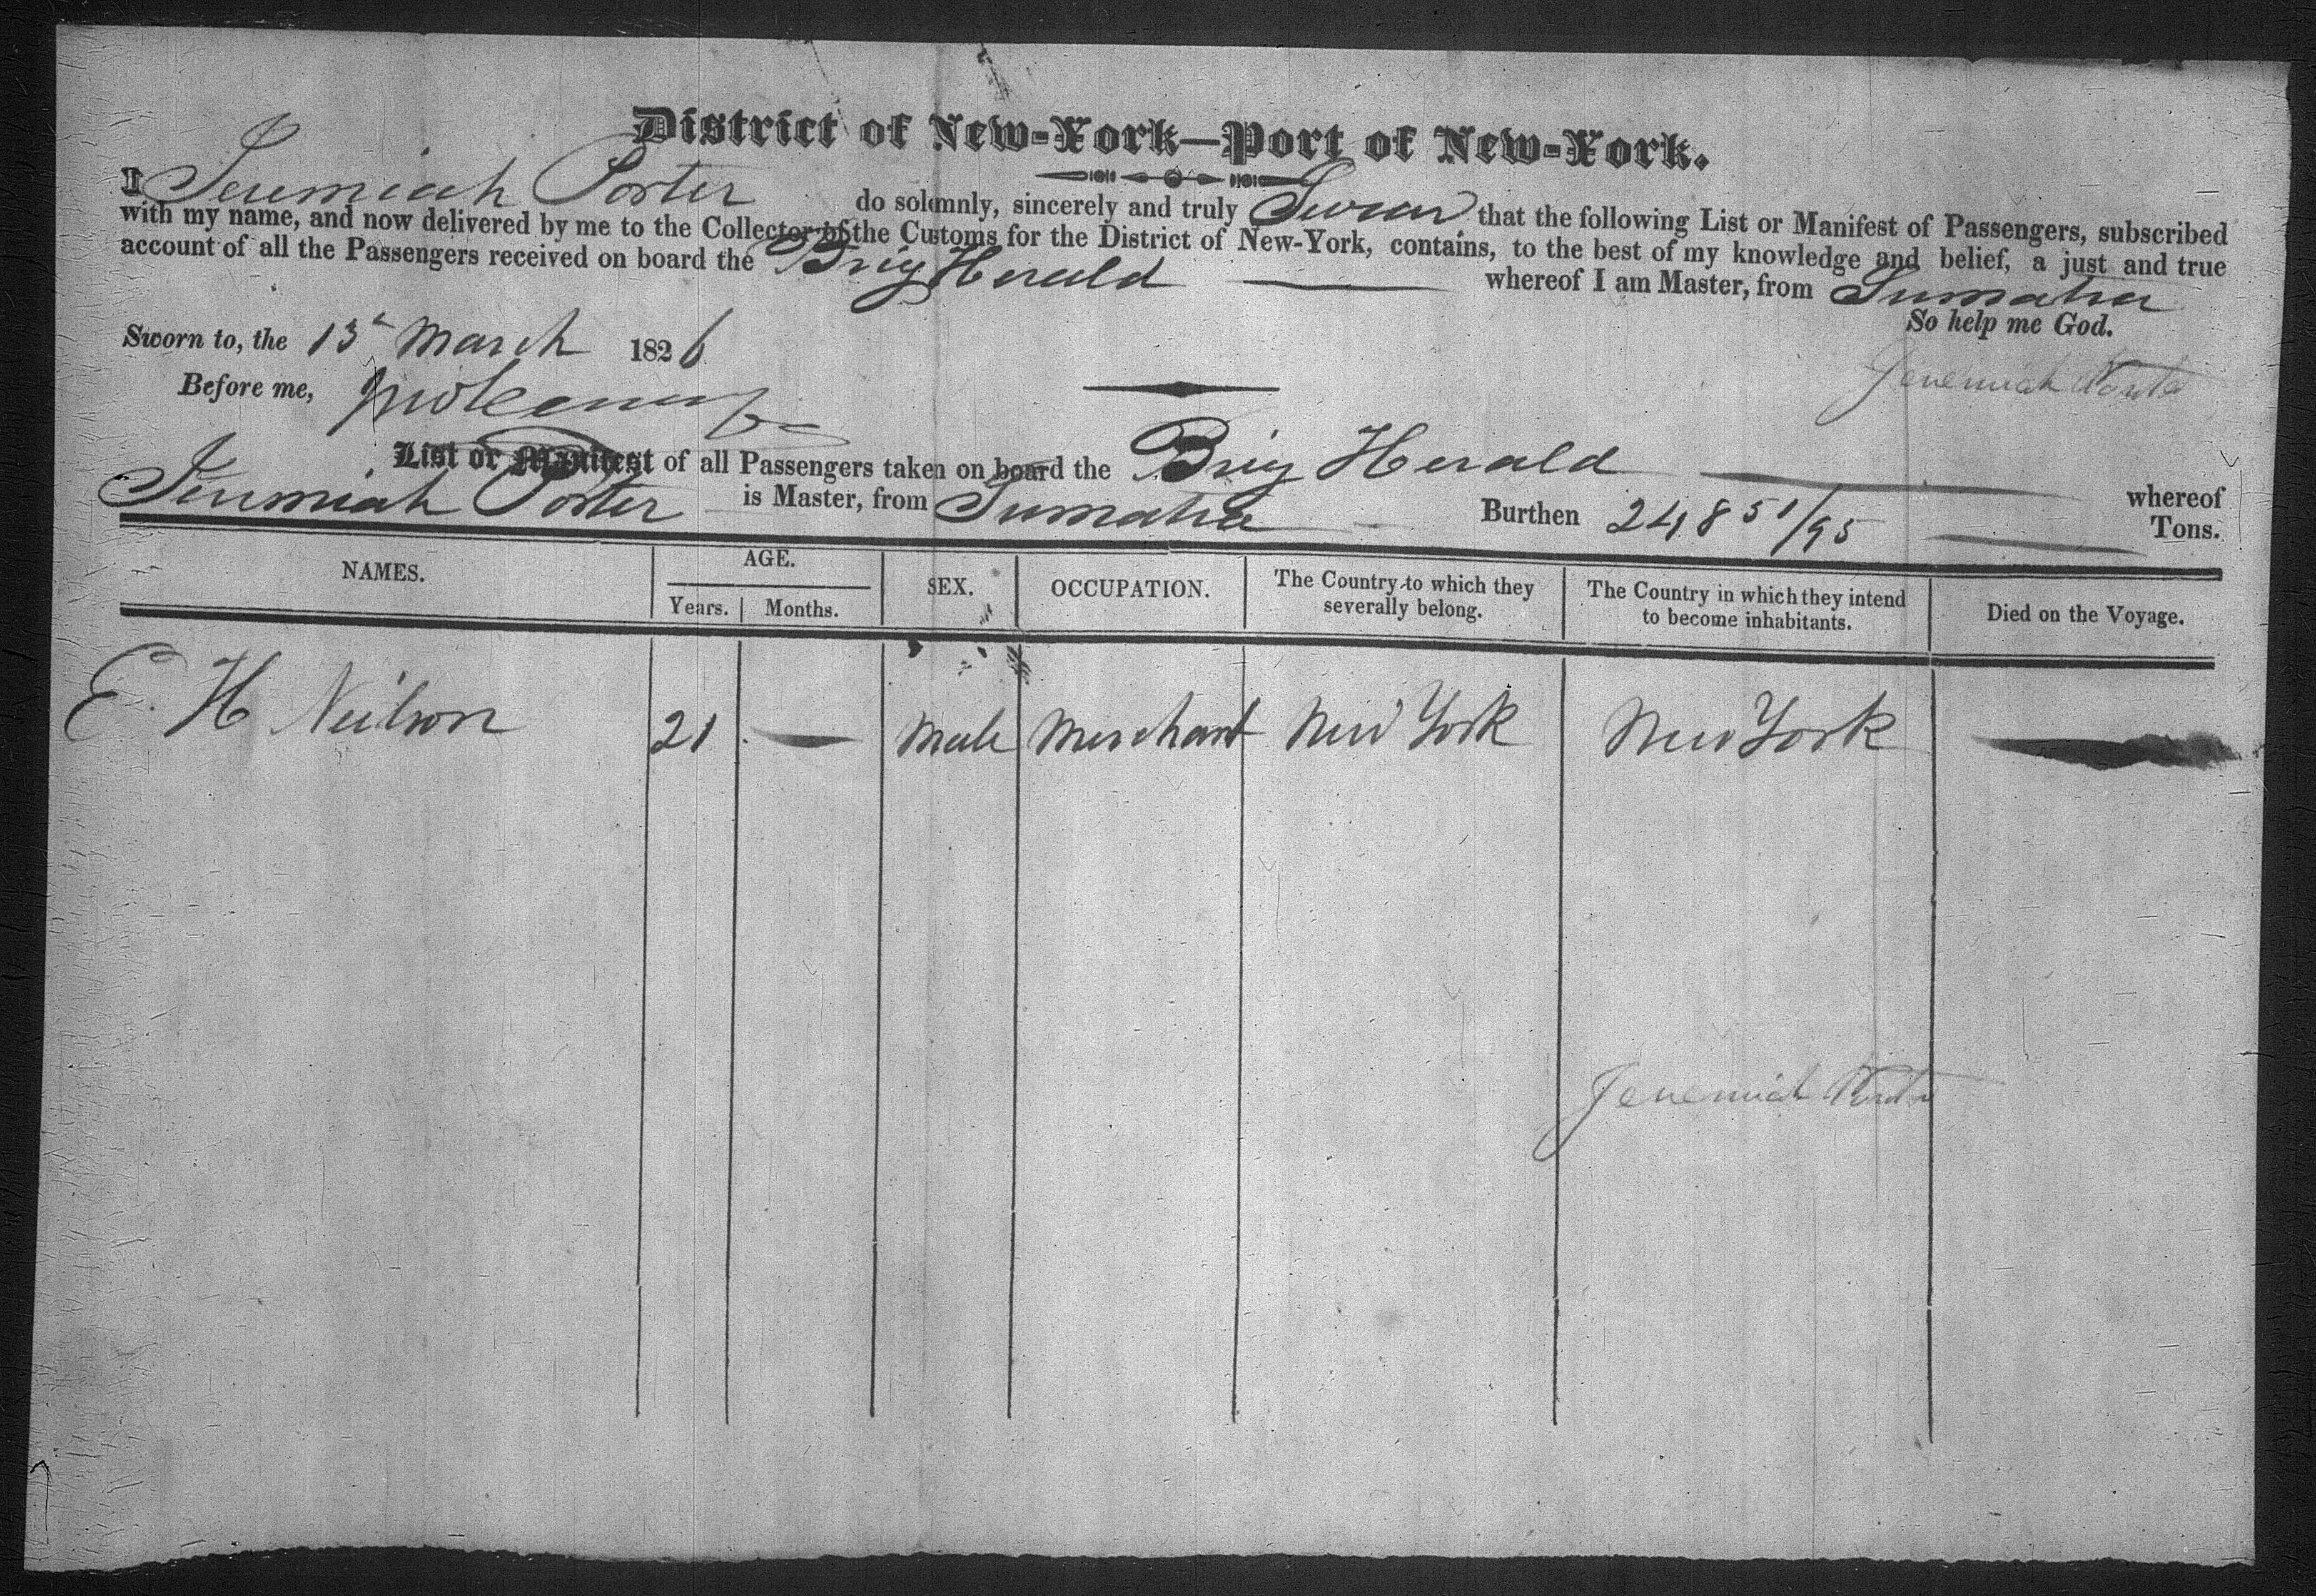 District of New-York—Port of New-York.
I Jeremiah Porter do solemnly, sincerely and truly Swear that the following List or Manifest of Passengers, subscribed
with my name, and now delivered by me to the Collector of the Customs for the District of New-York, contains, to the best of my knowledge and belief, a just and true
account of all the Passengers received on board the Brig Herald whereof I am Master, from Sumatra
So help me God.
Sworn to, the 13th March 1826
Jeremiah Porter
Before me,
List or Manifest of all Passengers taken on board the Brig Herald whereof
Jeremiah Porter is Master, from Sumatra Burthen 248 51/95 Tons.
NAMES. AGE. SEX. OCCUPATION. The Country to which they severally belong. The Country in which they intend to become inhabitants. Died on the Voyage.
Years. Months.
E. H Neilson 21 — Male Merchant New York New York —
Jeremiah Porter